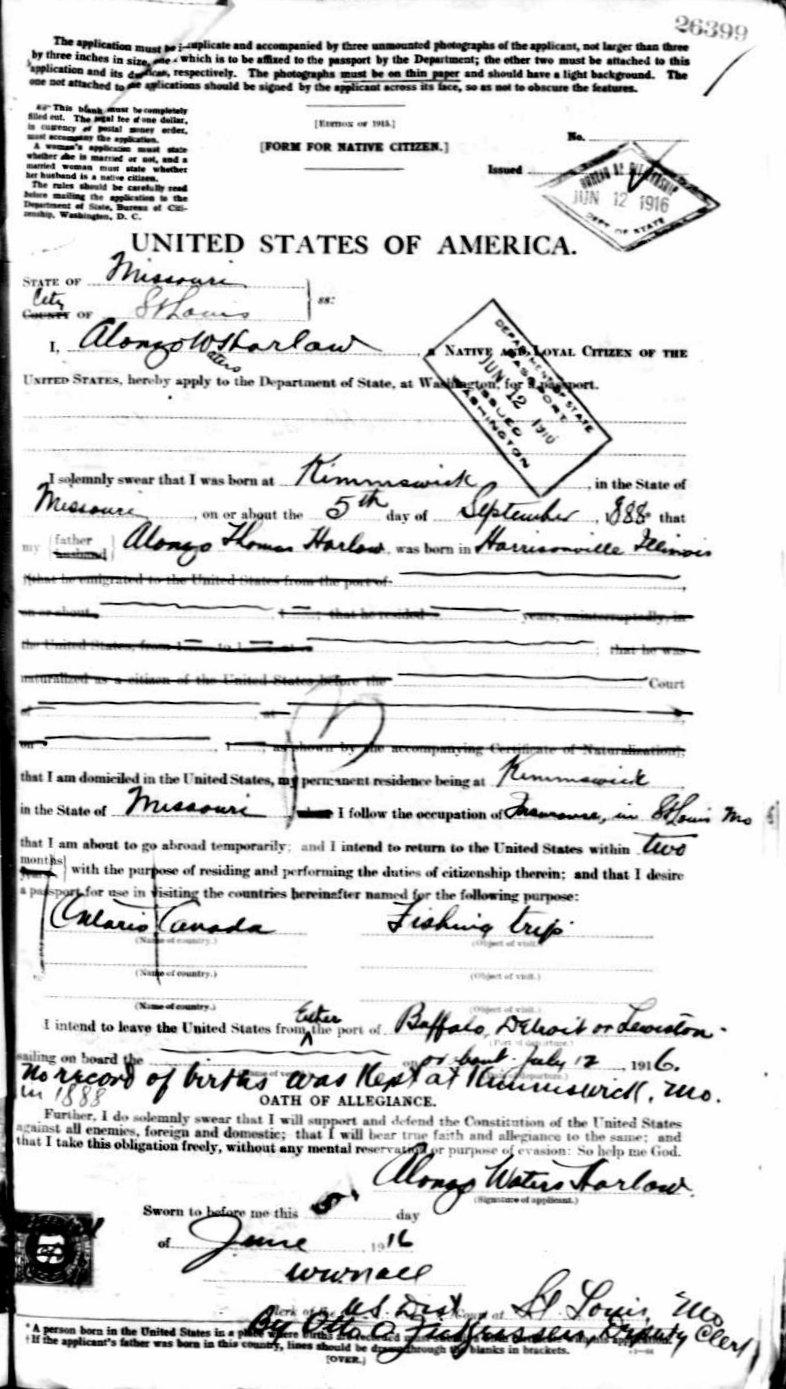 26399
The application must be in duplicate and accompanied by three unmounted photographs of the applicant, not larger than three
by three inches in size, one of which is to be affixed to the passport by the Department; the other two must be attached to this
application and its duplicate, respectively. The photographs must be on thin paper and should have a light background. The
one not attached to the applications should be signed by the applicant across its face, so as not to obscure the features.
This blank must be completely
filled out. The legal fee of one dollar,
in currency or postal money order,
must accompany the application.
A woman's application must state
whether she is married or not, and a
married woman must state whether
her husband is a native citizen.
The rules should be carefully read
before mailing the application to the
Department of State, Bureau of Citi-
zenship, Washington, D. C.
[EDITION OF 1915.]
[FORM FOR NATIVE CITIZEN.]
No.
Issued
BUREAU OF CITIZENSHIP
JUN 12 1916
DEPT OF STATE
UNITED STATES OF AMERICA.
STATE OF Missouri
City
COUNTY OF St Louis
ss:
I, Alonzo W Harlow, a NATIVE AND LOYAL CITIZEN OF THE
Waters
UNITED STATES, hereby apply to the Department of State, at Washington, for a passport.
DEPARTMENT OF STATE
PASSPORT
JUN 12 1916
ISSUED
WASHINGTON
I solemnly swear that I was born at Kimmswick, in the State of
Missouri, on or about the 5th day of September, 1888 that
my father husband Alonzo Thomas Harlow, was born in Harrisonville Illinois
that he emigrated to the United States from the port of
on or about, 1; that he resided years, uninterruptedly, in
the United States, from 1 to 1 at; that he was
naturalized as a citizen of the United States before the Court
of, at
on, 1 as shown by the accompanying Certificate of Naturalization];
that I am domiciled in the United States, my permanent residence being at Kimmswick
in the State of Missouri I follow the occupation of Insurance, in St Louis Mo
that I am about to go abroad temporarily; and I intend to return to the United States within two
months years with the purpose of residing and performing the duties of citizenship therein; and that I desire
a passport for use in visiting the countries hereinafter named for the following purpose:
Ontario Canada Fishing trip
(Name of country.) (Object of visit.)
(Name of country.) (Object of visit.)
(Name of country.) (Object of visit.)
Either
I intend to leave the United States from the port of Buffalo, Detroit or Lewiston
(Port of departure.)
sailing on board the on or bout July 12, 1916.
No record of births was Kept at Kimmswick, Mo.
in 1888
OATH OF ALLEGIANCE.
Further, I do solemnly swear that I will support and defend the Constitution of the United States
against all enemies, foreign and domestic; that I will bear true faith and allegiance to the same; and
that I take this obligation freely, without any mental reservation or purpose of evasion: So help me God.
Alonzo Waters Harlow.
(Signature of applicant.)
Sworn to before me this 8" day
of June, 1916
W W Nall
Clerk of the U.S. Dist Court at St Louis, Mo
By Deputy Clerk
*A person born in the United States in a place where births
†If the applicant's father was born in this country, lines should be drawn through the blanks in brackets.
[OVER.]